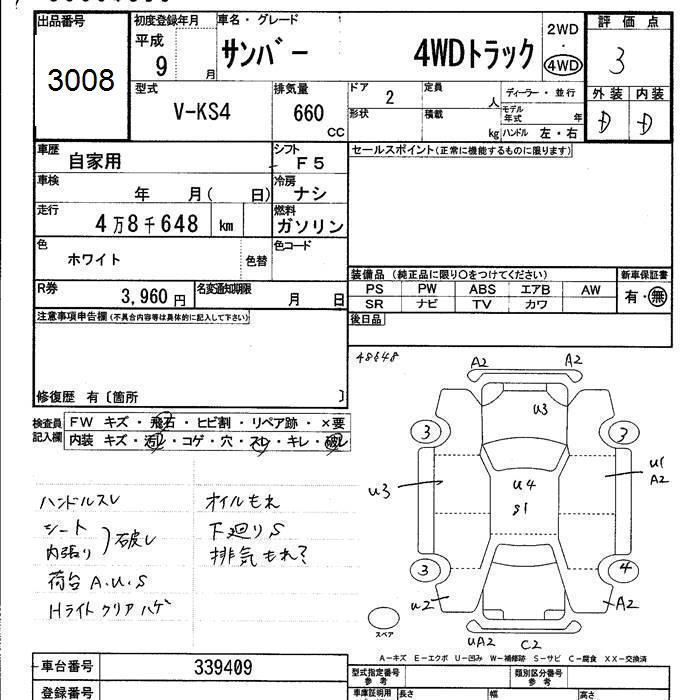 出品番号 3008
初度登録年月 平成 9 月
車名・グレード サンバー 4WDトラック
2WD・4WD
評価点 3
型式 V-KS4
排気量 660 CC
ドア 2
定員 人
ディーラー・並行
形状
積載 kg
モデル年式 年
ハンドル 左・右
外装 D
内装 D
車歴 自家用
シフト F5
セールスポイント(正常に機能するものに限ります)
車検 年 月( 日)
冷房 ナシ
走行 4万8千648 km
燃料 ガソリン
色 ホワイト 色替
色コード
R券 3,960円
名変通知期限 月 日
装備品(純正品に限り○をつけてください)
新車保証書 有・無
PS PW ABS エアB AW
SR ナビ TV カワ
後日品
注意事項申告欄(不具合内容等は具体的に記入して下さい)
修復歴 有〔箇所 〕
検査員記入欄
FW キズ・飛石・ヒビ割・リペア跡・×要
内装 キズ・汚レ・コゲ・穴・スレ・キレ・破レ
48648
A2 A2
U3
3 3
U3
U4
S1
U1
A2
3 4
U2
A2
スペア
UA2 C2
ハンドルスレ
シート
内張り
破レ
荷台 A.U.S
Hライトクリアハゲ
オイルもれ
下廻りS
排気もれ?
A-キズ E-エクボ U-凹み W-補修跡 S-サビ C-腐食 XX-交換済
車台番号 339409
登録番号
型式指定番号 参考
類別区分番号 参考
車庫証明用 長さ 幅 高さ